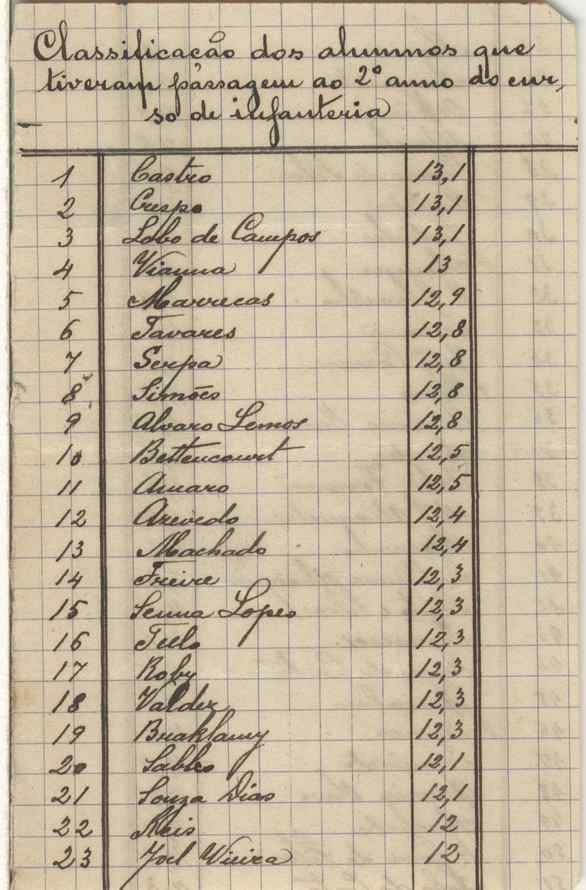 Classificação dos alumnos que
tiveram passagem ao 2º anno do cur,
so de infanteria
1 Castro 13,1
2 Crespo 13,1
3 Lobo de Campos 13,1
4 Vianna 13
5 Marrecas 12,9
6 Tavares 12,8
7 Serpa 12,8
8 Simões 12,8
9 Alvaro Lemos 12,8
10 Bettencourt 12,5
11 Amaro 12,5
12 Azevedo 12,4
13 Machado 12,4
14 Freire 12,3
15 Senna Lopes 12,3
16 Tello 12,3
17 Roby 12,3
18 Valdez 12,3
19 12,3
20 12,1
21 Souza Dias 12,1
22 Reis 12
23 Joel Vieira 12